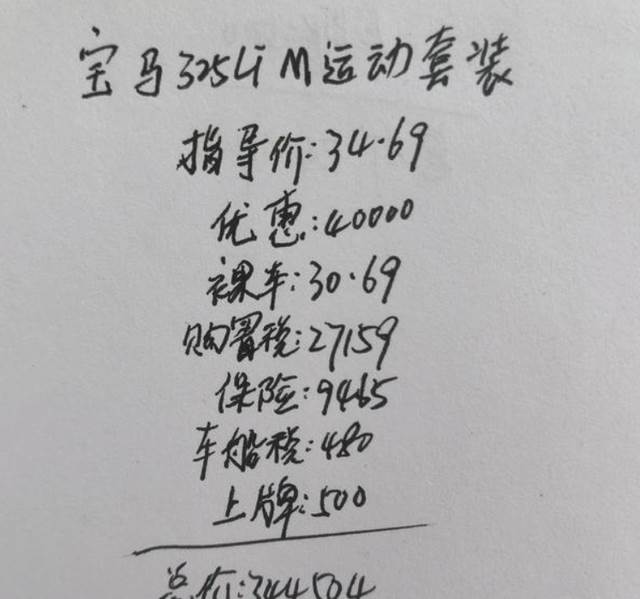 宝马325Li M运动套装
指导价:34.69
优惠:40000
裸车:30.69
购置税:27159
保险:9465
车船税:480
上牌:500
总价:344504